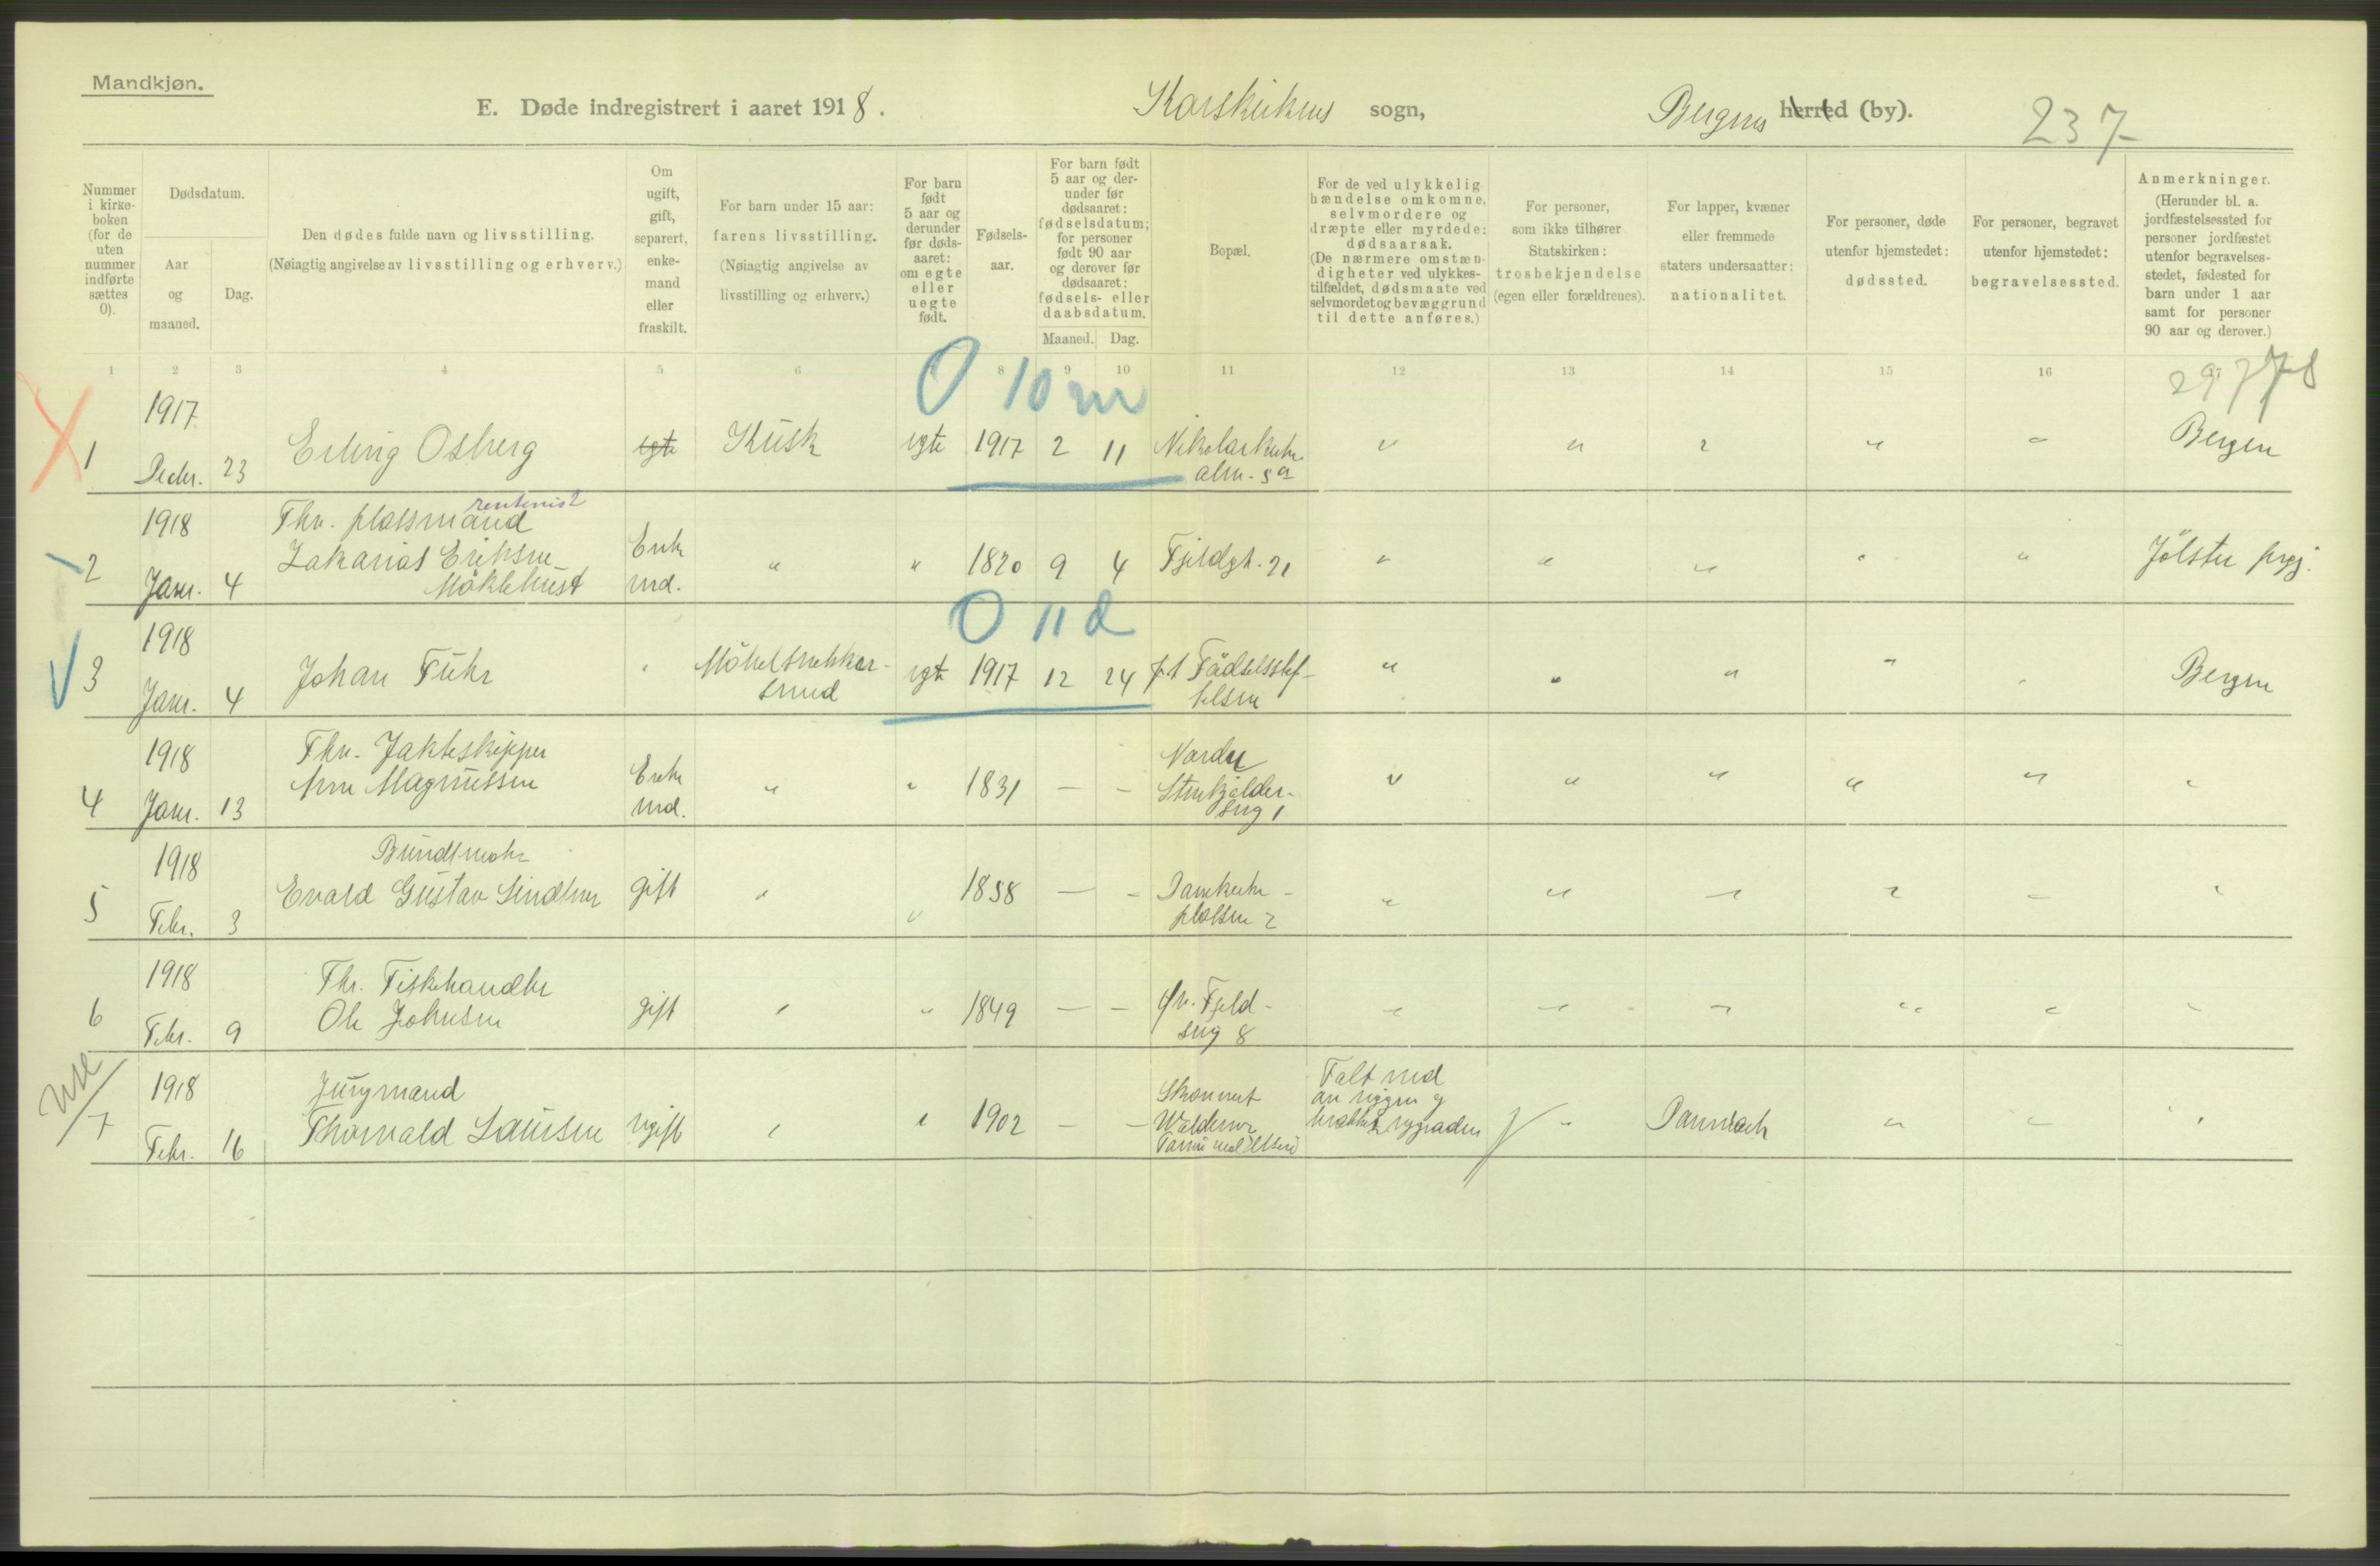 Mandkjøn.
E. Døde indregistrert i aaret 1918. Korskirkens sogn, Bergens herred (by). 237
Nummer i kirkeboken (for de uten nummer indførte sættes 0).
Dødsdatum.
Aar og maaned.
Dag.
Den dødes fulde navn og livsstilling.
(Nøiagtig angivelse av livsstilling og erhverv.)
Om ugift, gift, separert, enkemand eller fraskilt.
For barn under 15 aar: farens livsstilling.
(Nøiagtig angivelse av livsstilling og erhverv.)
For barn født 5 aar og derunder før dødsaaret: om egte eller uegte født.
Fødselsaar.
For barn født 5 aar og derunder før dødsaaret: fødselsdatum; for personer født 90 aar og derover før dødsaaret: fødsels- eller daabsdatum.
Maaned. Dag.
Bopæl.
For de ved ulykkelig hændelse omkomne, selvmordere og dræpte eller myrdede: dødsaarsak.
(De nærmere omstændigheter ved ulykkestilfældet, dødsmaate ved selvmordet og bevæggrund til dette anføres.)
For personer, som ikke tilhører Statskirken: trosbekjendelse (egen eller forældrenes).
For lapper, kvæner eller fremmede staters undersaatter: nationalitet.
For personer, døde utenfor hjemstedet: dødssted.
For personer, begravet utenfor hjemstedet: begravelsessted.
Anmerkninger.
(Herunder bl. a. jordfæstelsessted for personer jordfæstet utenfor begravelsesstedet, fødested for barn under 1 aar samt for personer 90 aar og derover.)
1 2 3 4 5 6 8 9 10 11 12 13 14 15 16 17
0 10 m
1 1917 Decbr. 23 Erling Osberg egte Kusk egte 1917 2 11 Nikolaikirke
alm. 5a " " " " " Bergen
rentenist
2 1918 Janr. 4 Fhv. pladsmand
Zakarias Eriksen
Møklebust Enke
md. " " 1820 9 4 Fjeldgt. 21 " " " " " Jølster prgj.
0 11 d
3 1918 Janr. 4 Johan Führ " Møbelsnekker-
svend egte 1917 12 24 pt Fødselsstif-
telsen " " " " " Bergen
4 1918 Janr. 13 Fhv. Jakteskipper
Arne Magnussen Enke
md. " " 1831 – – Nordre
Stenkjelder-
smg 1 " " " " " "
5 1918 Febr. 3 Bundtmaker
Evald Gustav Lindtner gift " " 1858 – – Domkirke-
pladsen 2 " " " " " "
6 1918 Febr. 9 Fhv. Fiskehandler
Ole Johnsen gift " " 1849 – – Øv. Fjeld-
smg 8 " " " " " "
7 1918 Febr. 16 Jungmand
Thorvald Laursen ugift " " 1902 – – Skonnert
Waldemar
Falt ned
av riggen og
brækket rygraden " Danmark " " "